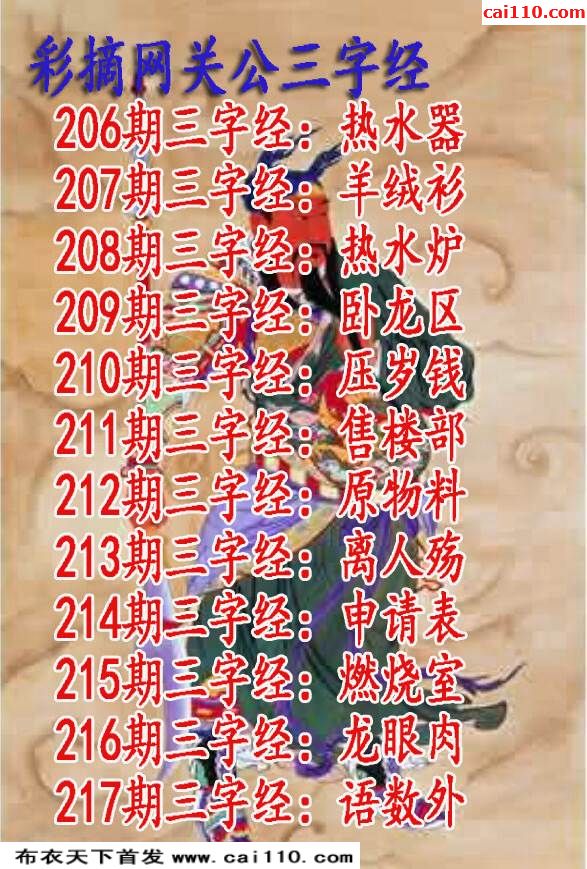 cai110.com
彩摘网关公三字经
206期三字经：热水器
207期三字经：羊绒衫
208期三字经：热水炉
209期三字经：卧龙区
210期三字经：压岁钱
211期三字经：售楼部
212期三字经：原物料
213期三字经：离人殇
214期三字经：申请表
215期三字经：燃烧室
216期三字经：龙眼肉
217期三字经：语数外
布衣天下首发 www.cai110.com